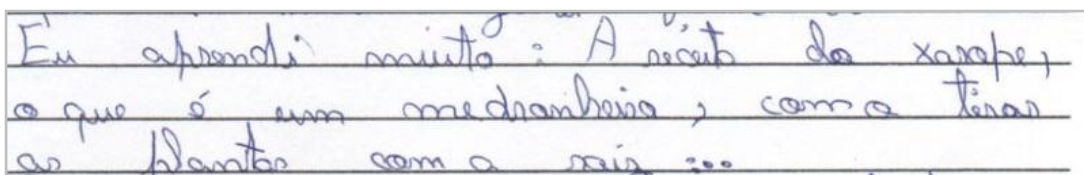 Eu aprendi muito: A receita do xarope,
o que é um medronheiro, como tiras
as plantas com a raiz ...